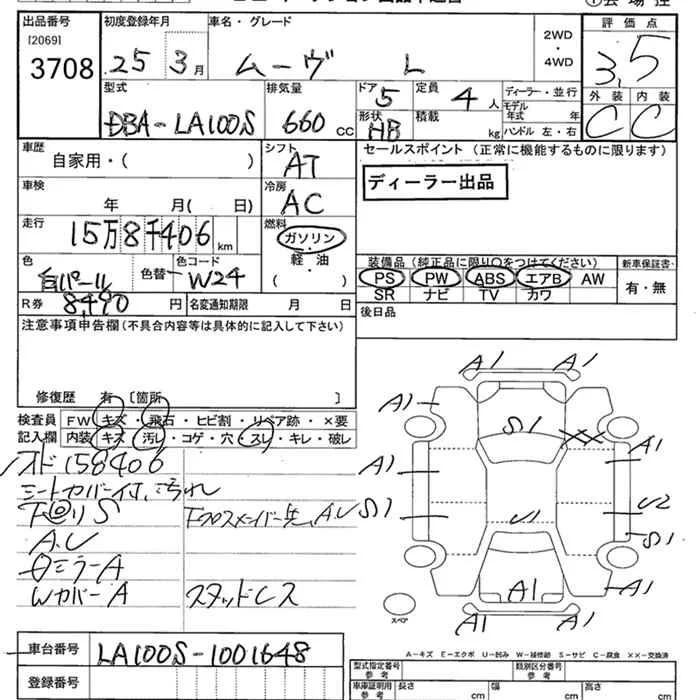 出品番号 初度登録年月 車名・グレード 2WD・4WD 評価点
[2069]
3708 25 3月 ムーヴ L 3.5
型式 排気量 ドア 5 定員 4人 ディーラー・並行 外装 内装
DBA-LA100S 660 CC 形状 HB 積載 kg モデル年式 年 C C
ハンドル 左・右
車歴 シフト セールスポイント (正常に機能するものに限ります)
自家用・( ) AT
ディーラー出品
車検 冷房
年 月( 日) AC
走行 燃料
15万8千406 km ガソリン
軽・油
( )
色 色替 色コード 装備品 (純正品に限り〇をつけてください) 新車保証書
白パール W24 PS PW ABS エアB AW 有・無
SR ナビ TV カワ
R券 8,490円 名変通知期限 月 日 後日品
注意事項申告欄(不具合内容等は具体的に記入して下さい)
修復歴 有 〔箇所 〕
検査員 FW キズ・飛石・ヒビ割・リペア跡・×要
記入欄 内装 キズ・汚レ・コゲ・穴・スレ・キレ・破レ
オド158406
シートカバー付、汚れ
下回りS 下クロスメンバー先、A.U
A.U
Wカバー A スタッドレス
A1 A1
A1 S1 XX
A1 A1
S1 U1 U2
S1
A1 A1
A1 A1
スペア
A-キズ E-エクボ U-凹み W-補修跡 S-サビ C-腐食 XX-交換済
車台番号 LA100S-1001648
型式指定番号 参考 類別区分番号 参考
登録番号
車庫証明用 参考 長さ cm 幅 cm 高さ cm